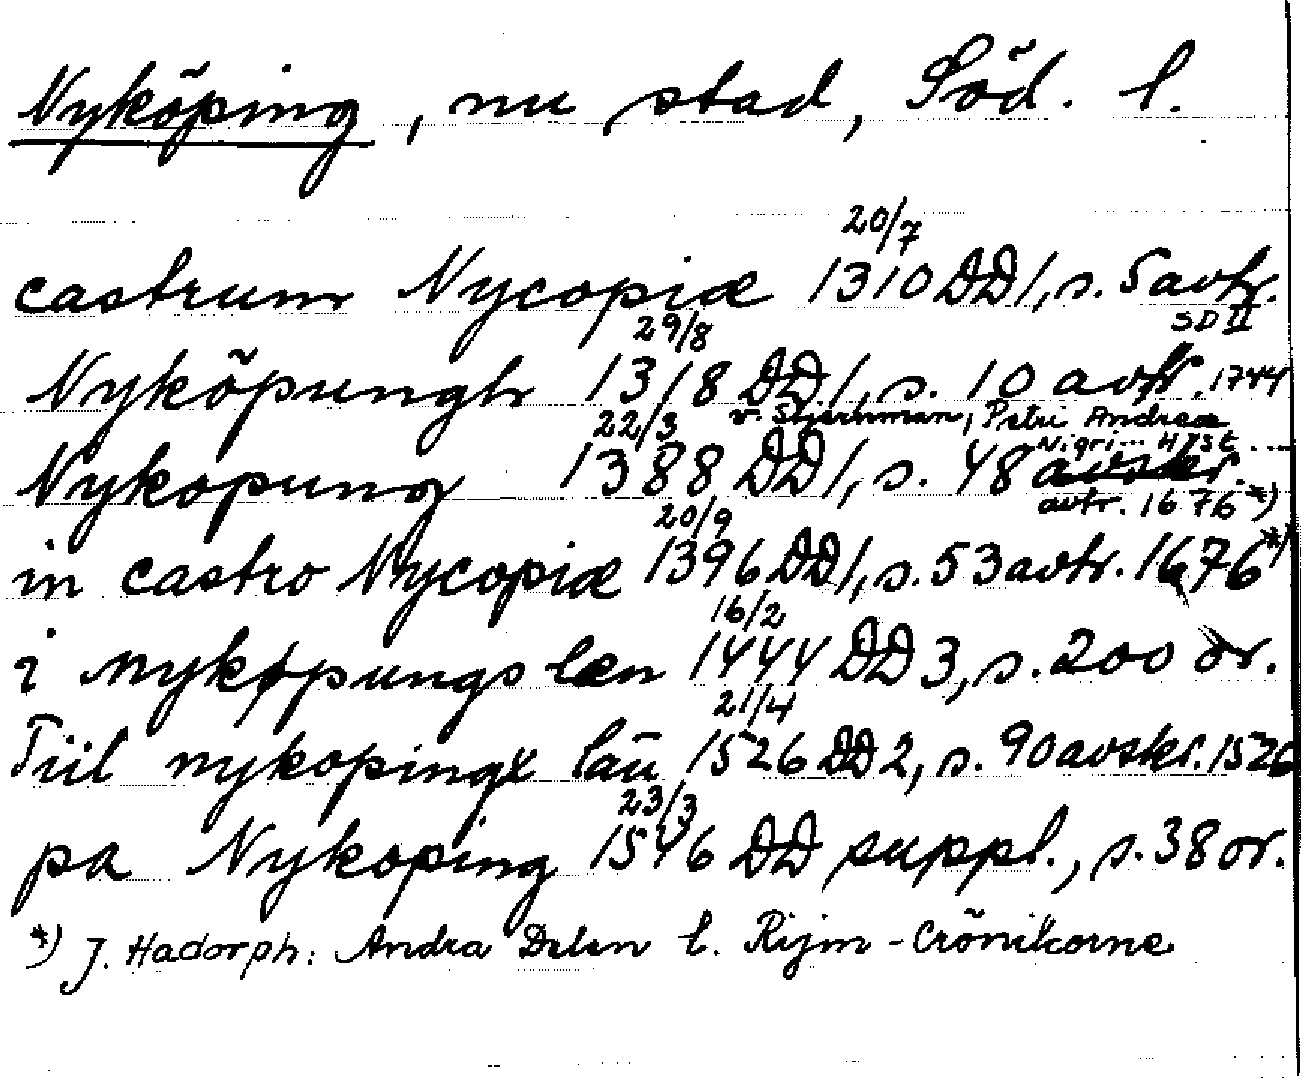 Nyköping, nu stad, Söd. l.
20/7
castrum Nycopiæ 1310 DD 1, s. 5 avtr.
SD II
29/8
Nyköpungh 1318 DD 1, s. 10 avtr. 1744
v. Stjernman, Petri Andreæ
Nigri... Hist....
22/3
Nykopung 1388 DD 1, s. 48 avskr.
avtr. 1676 *)
20/9
in castro Nycopiæ 1396 DD 1, s. 53 avtr. 1676 *)
16/2
i nykøpungs læn 1444 DD 3, s. 200 or.
21/4
Tiil nykopingx län 1526 DD 2, s. 90 avskr. 1526
23/3
pa Nykoping 1546 DD suppl., s. 38 or.
*) J. Hadorph: Andra Delen l. Rijm-Crönikorne